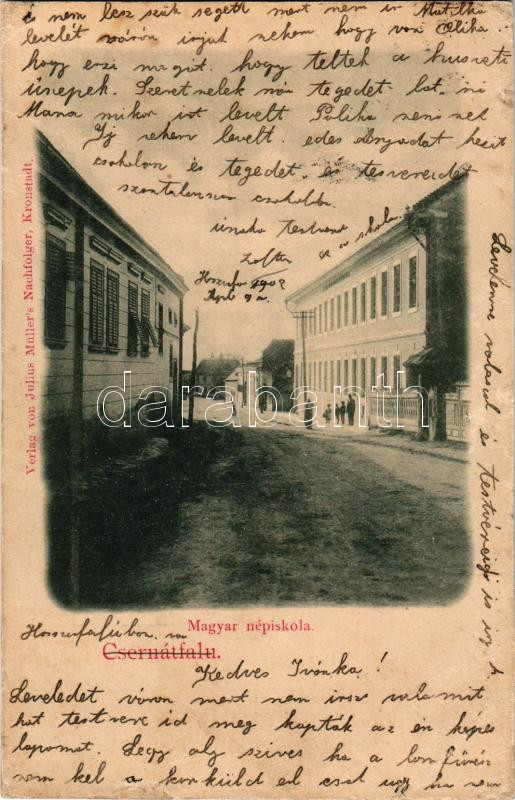 és nem lesz szük segett mert nem ir Matilka
levelét várom irjut nekem hogy van Otilka
hogy erzi magát. hogy teltek a husveti
ünepek. Szeretnelek már tegedet lat. ni
Mama mikor irt levelt Polika neni nel
Irj nekem levelt. edes Anyadat kezit
csokolom és tegedet és testvereidet
szamtalanszor csokollom.
unoka testvered
Zoltan
ez a skola.
Hoszufa 1902
Apr 9 a.
Verlag von Julius Müller's Nachfolger, Kronstadt.
Levelemre valaszul és testvéreid is irj
darabanth
Magyar népiskola.
Hosszufaluban. van
Csernátfalu.
Kedves Ivónka!
Leveledet várom mert nem irsz valamit
hat testvere id meg kapták az én képes
lapomat. Legy oly szives ha a lomfürész
nem kel a kor küld el csak ugy ha nem